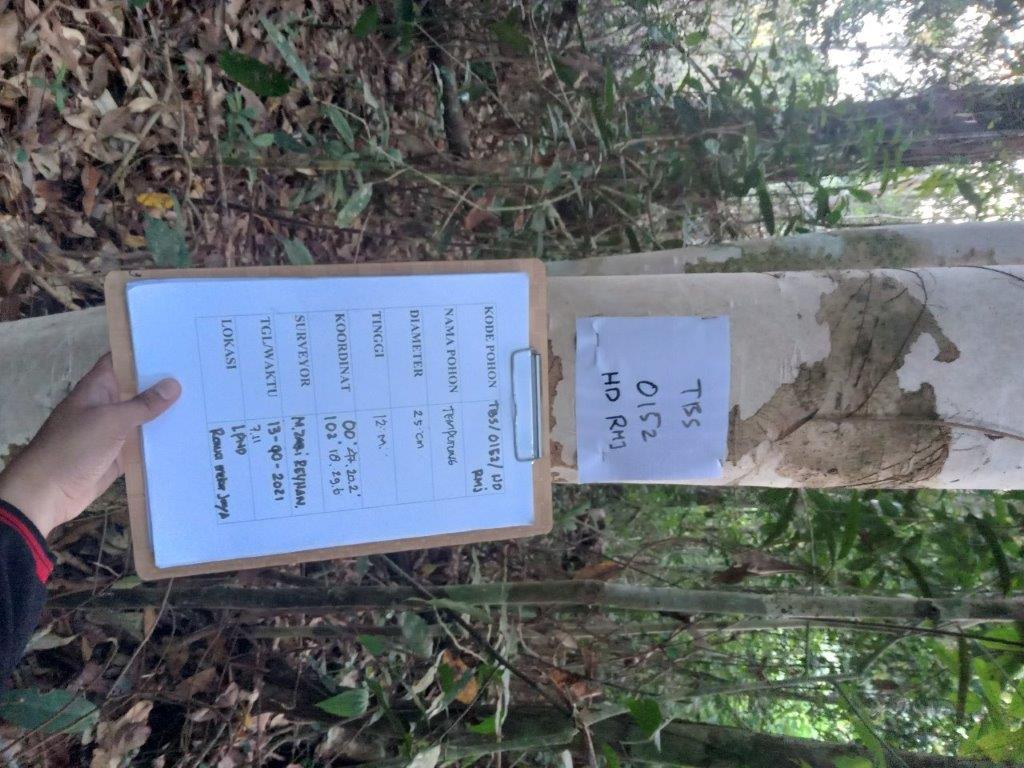 TBS
0152
HD RMJ
KODE POHON TBS/0152/ HD
RMJ
NAMA POHON TEMPUTUNG
DIAMETER 25 cm
TINGGI 12 M.
KOORDINAT 00° 20.2'
102° 18. 29.6
SURVEYOR M. ZAKI REYHAN.
TGL/WAKTU 13-90-2021
7.11
LOKASI LPHD
Rawa mekar Jaya